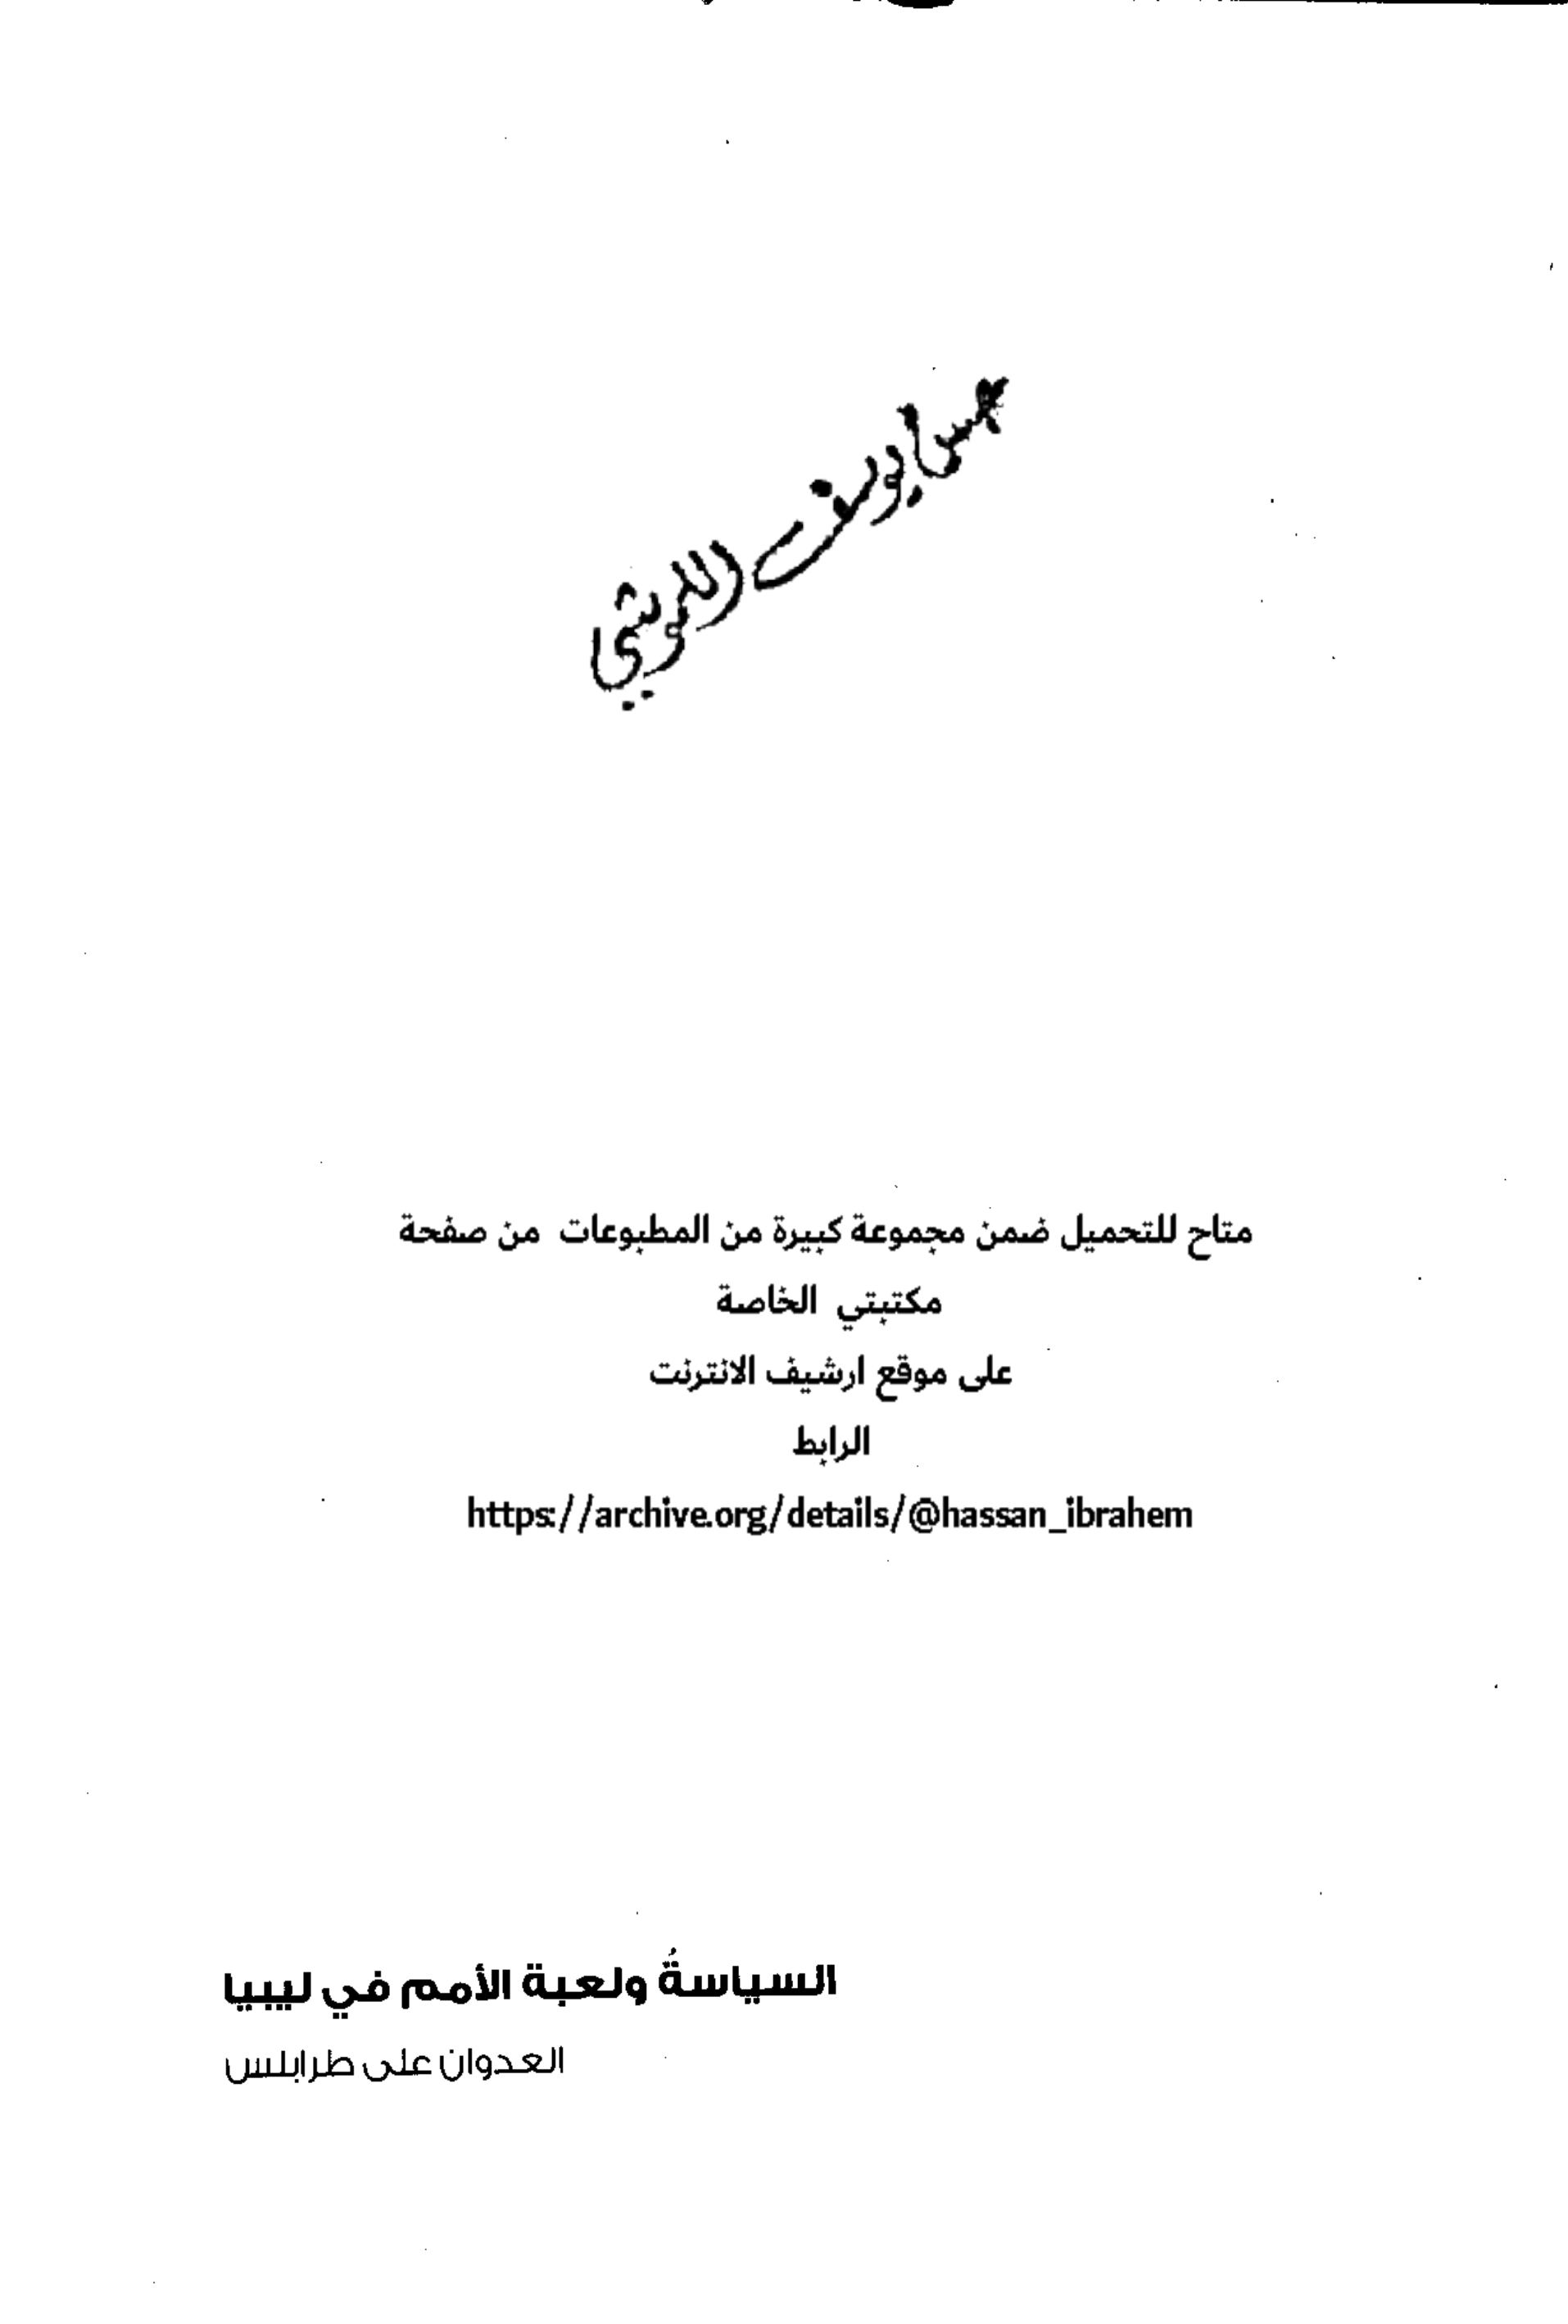 يوسف
متاح للتحميل ضمن مجموعة كبيرة من المطبوعات من صفحة
مكتبتي الخاصة
على موقع ارشيف الانترنت
الرابط
https://archive.org/details/@hassan_ibrahem
السياسةُ ولعبة الأمم في ليبيا
العدوان على طرابلس